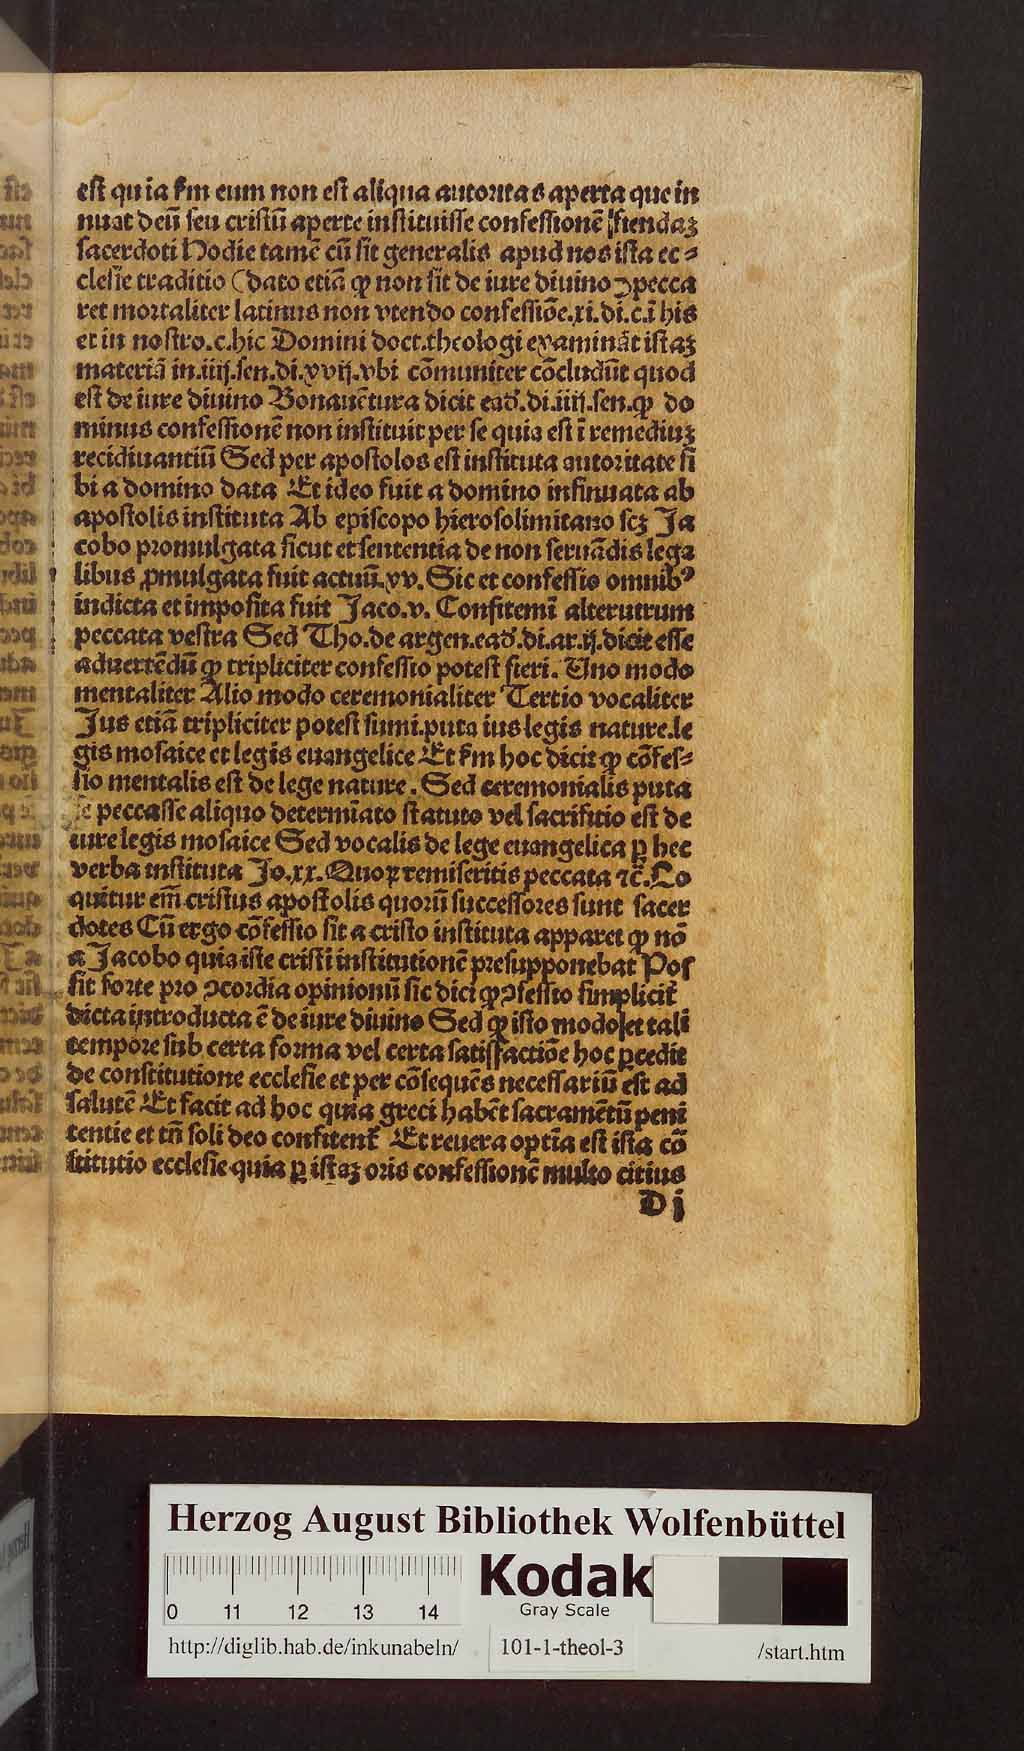 est quia ẜm eum non est aliqua autoritas aperta que in
nuat deū seu cristū aperte instituisse confessionē fiendaꝫ
sacerdoti Hodie tamē cū sit generalis apud nos ista ec⸗
clesie traditio (dato etiā ꝙ non sit de iure diuino) pecca
ret mortaliter latinus non vtendo confessiōe.xi.di.c.ī his
et in nostro.c.hic Domini doct.theologi examināt istaꝫ
materiā in.iiij.sen.di.xvij.vbi cōmuniter cōcludūt quod
est de iure diuino Bonauētura dicit eaď.di.iiij.sen.ꝙ do
minus confessionē non instituit per se quia est ī remediuꝫ
recidiuantiū Sed per apostolos est instituta autoritate si
bi a domino data Et ideo fuit a domino insinuata ab
apostolis instituta Ab episcopo hierosolimitano scꝫ Ja
cobo promulgata sicut et sententia de non seruādis lega
libus ꝓmulgata fuit actuū.xv. Sic et confessio omnibꝰ
indicta et imposita fuit Jaco.v. Confitemī alterutrum
peccata vestra Sed Tho.de argen.eaď.di.ar.ij.dicit esse
aduertēdū ꝙ tripliciter confessio potest fieri. Uno modo
mentaliter Alio modo ceremonialiter Tertio vocaliter
Jus etiā tripliciter potest sumi.puta ius legis nature.le
gis mosaice et legis euangelice Et ẜm hoc dicit ꝙ cōfes⸗
sio mentalis est de lege nature. Sed ceremonialis puta
se peccasse aliquo determīato statuto vel sacrificio est de
iure legis mosaice Sed vocalis de lege euangelica ꝑ hec
verba instituta Jo.xx. Quoꝝ remiseritis peccata ⁊c̄. Lo
quitur em̄ cristus apostolis quorū successores sunt sacer
dotes Cū ergo cōfessio sit a cristo instituta apparet ꝙ nō
a Jacobo quia iste cristi institutionē presupponebat Pos
sit forte pro ↄcordia opinionū sic dici ꝙ ↄfessio simpliciť
dicta introducta ē de iure diuino Sed ꝙ isto modo et tali
tempore sub certa forma vel certa satisfactiōe hoc ꝓcedit
de constitutione ecclesie et per cōsequēs necessariū est ad
salutē Et facit ad hoc quia greci habēt sacramētū peni
tentie et tn̄ soli deo confitenť Et reuera optīa est ista cō
stitutio ecclesie quia ꝑ istaꝫ oris confessionē multo citius
D j
Herzog August Bibliothek Wolfenbüttel
Kodak
Gray Scale
0 11 12 13 14
http://diglib.hab.de/inkunabeln/ 101-1-theol-3 /start.htm